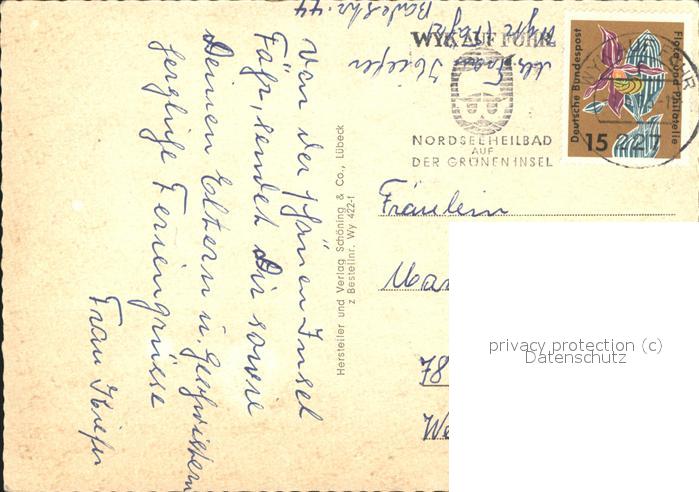 von der schönen Insel
Föhr, sendet Dir sowie
Deinen Eltern u. Geschwistern
herzliche Feriengrüsse
Frau Kiefer
Hersteller und Verlag Schöning & Co., Lübeck
z Bestellnr. Wy 422-f
Abs. Frau Kiefer
Wyk (Föhr)
WYK AUF FÖHR
NORDSEEHEILBAD
AUF
DER GRÜNEN INSEL
Deutsche Bundespost
Flora und Philatelie
15
2271
Fräulein
Mar
78
We
privacy protection (c)
Datenschutz